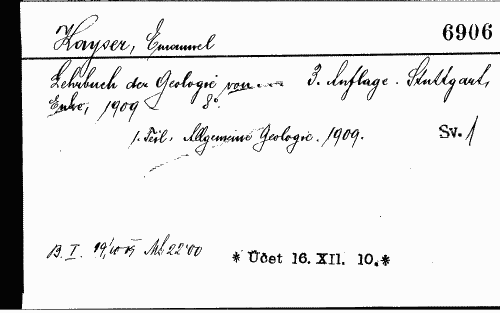 6906
Kayser, Emanuel
Lehrbuch der Geologie von --- 3. Auflage. Stuttgart,
Enke, 1909 8°.
1. Teil. Allgemeine Geologie. 1909. Sv. 1
B. I. Mk 22·00 * Účet 16. XII. 10.*